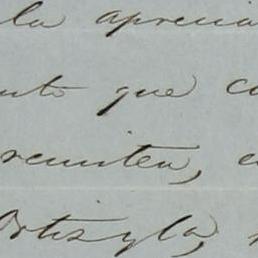 la aprecia
nto que c
remiten, e
Ortiz y la,